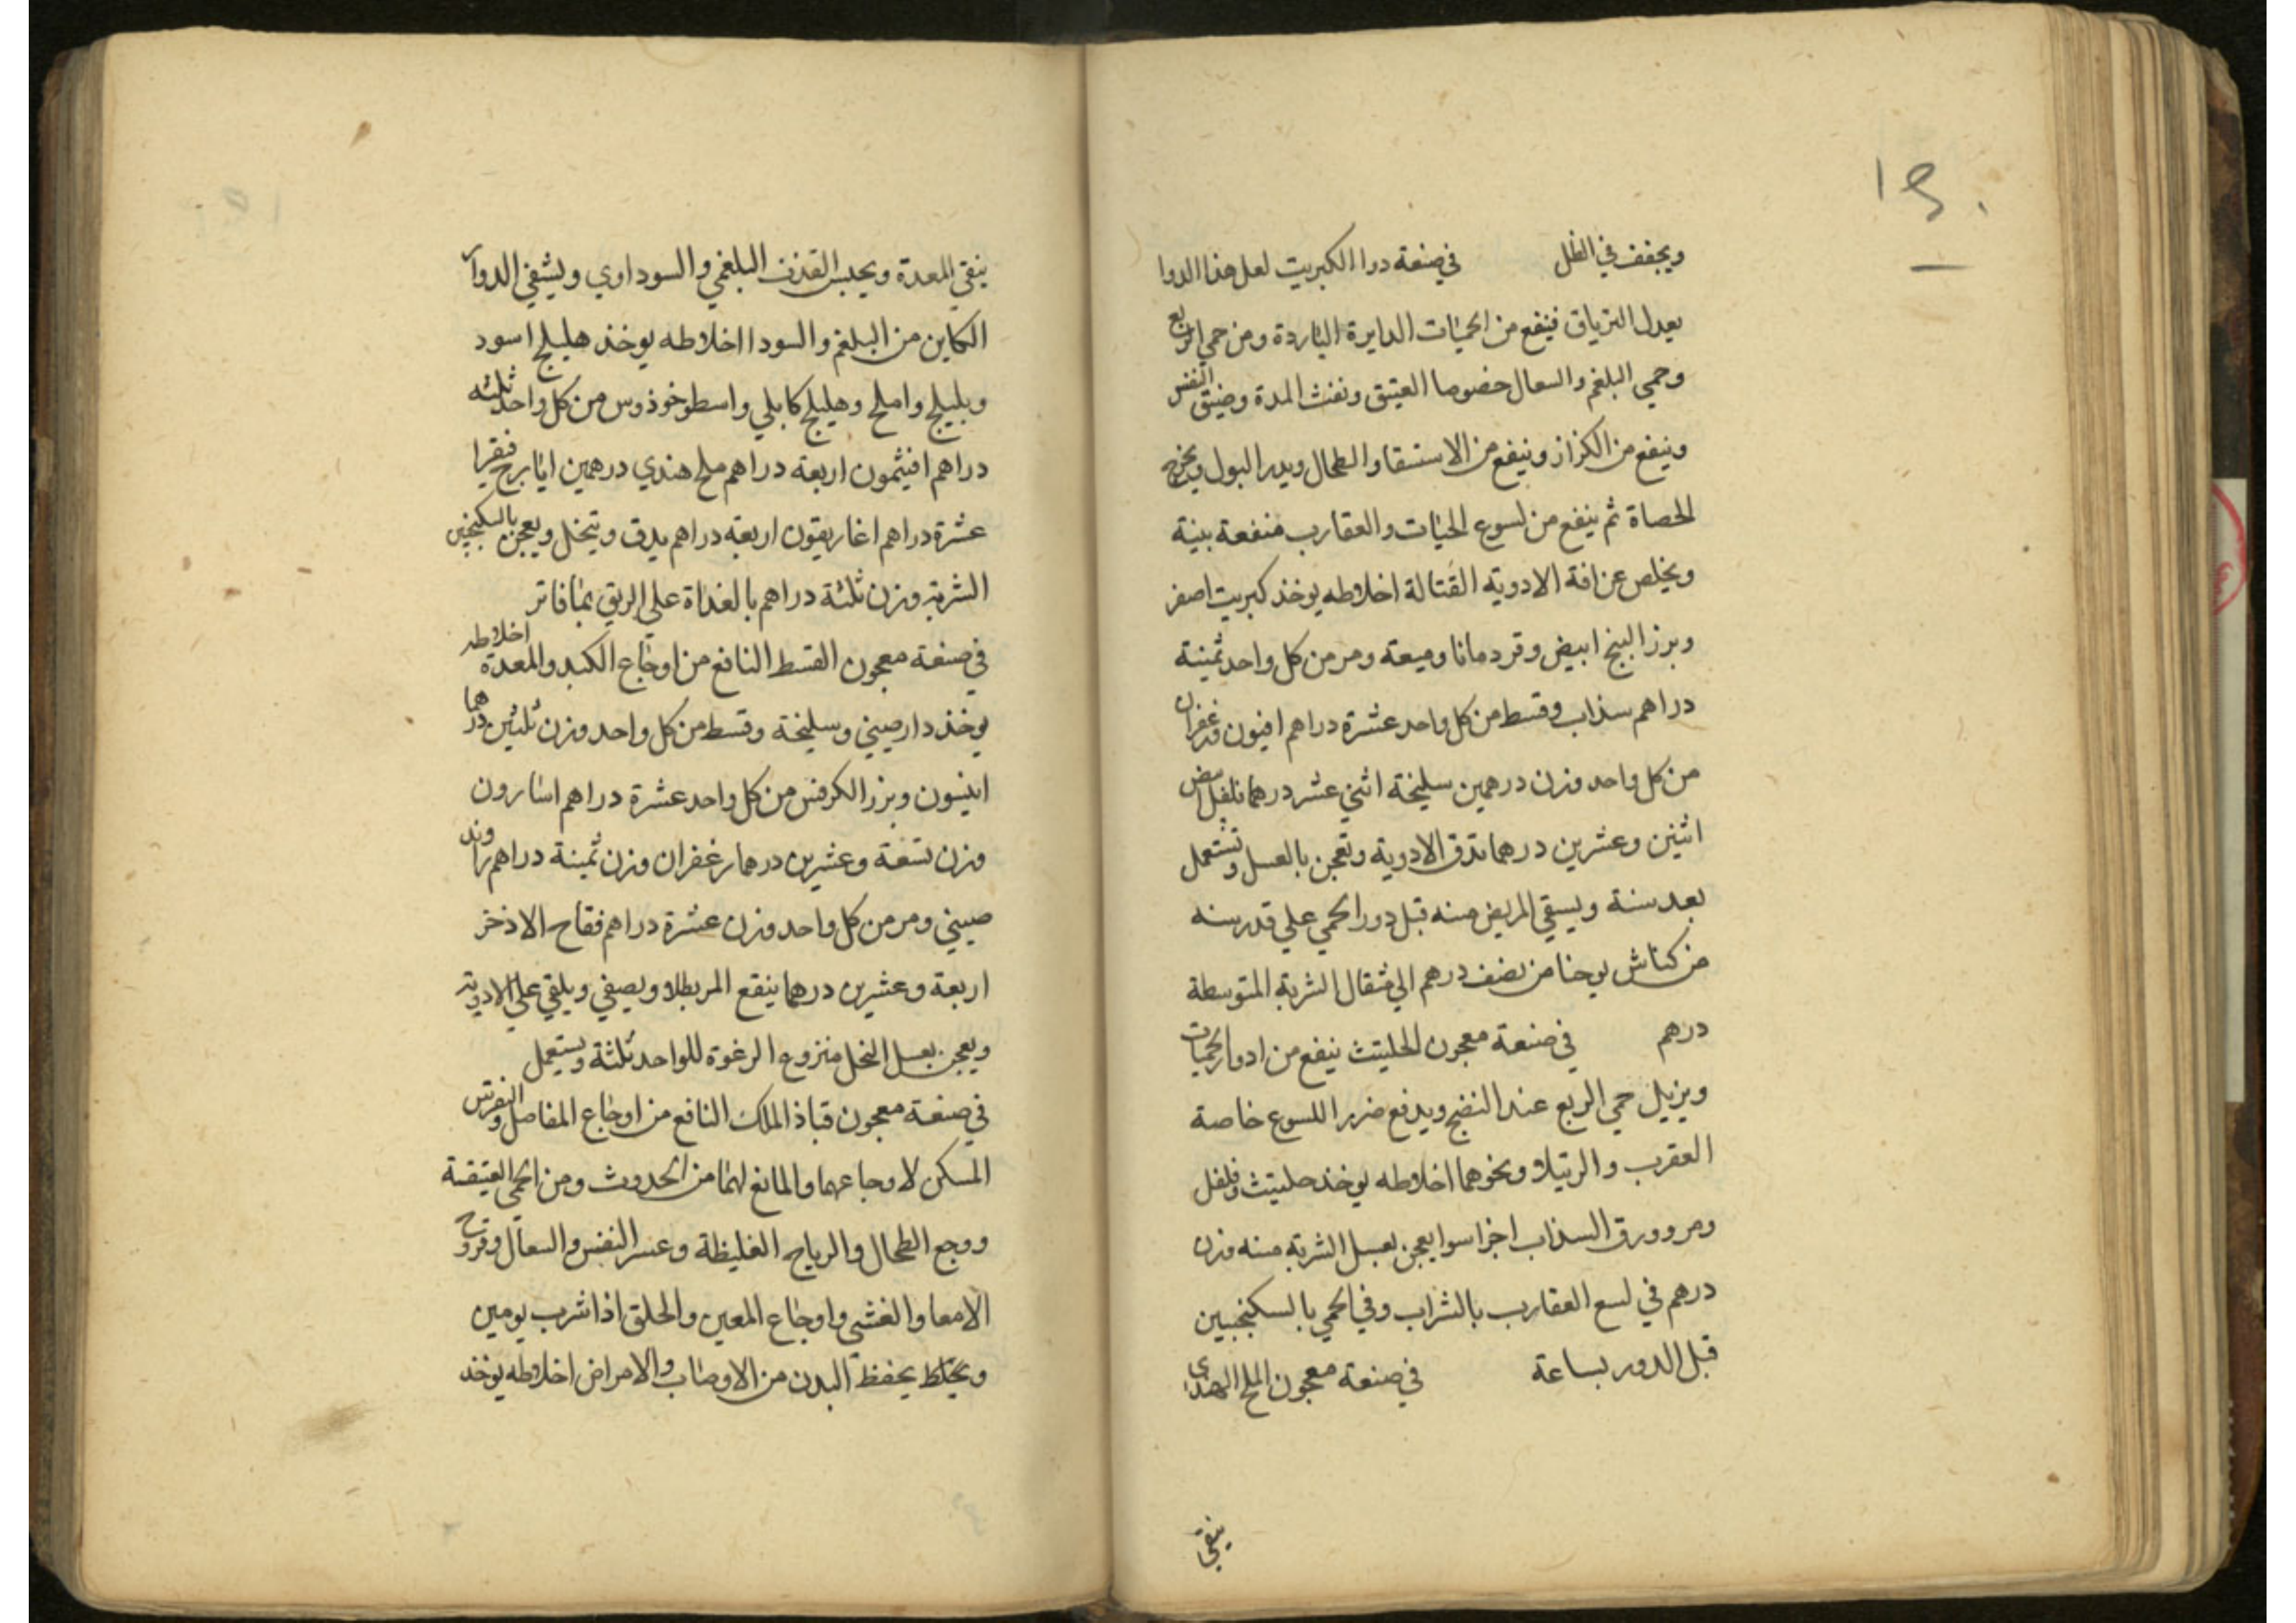 ١٥٠
ويجفف في الظل في صنعة دوا الكبريت لعل هذا الدوا
يعدل الترياق فينفع من الحميات الدايرة الباردة ومن حمى الربع
وحمي البلغم والسعال خصوصا العتيق ونفث المدة وضيق النفس
وينفع من الكزاز وينفع من الاستسقا والطحال ويدر البول ويخرج
الحصاة ثم ينفع من لسوع الحيات والعقارب منفعة بينة
ويخلص عن افة الادوية القتالة اخلاطه يوخذ كبريت اصفر
وبزر البنج ابيض وقردمانا وميعة ومر من كل واحد ثمنية
دراهم سذاب وقسط من كل واحد عشرة دراهم افيون وزعفران
من كل واحد وزن درهمين سليخة اثني عشر درهما فلفل ابيض
اثنين وعشرين درهما تدق الادوية وتعجن بالعسل وتستعمل
بعد سنة ويسقي المريض منه قبل دور الحمي علي قدر سنه
من كناش يوحنا من نصف درهم الي مثقال الشربة المتوسطة
درهم في صنعة معجون الحلتيث ينفع من ادوار الحميات
ويزيل حمي الربع عند النضج ويدفع ضرر اللسوع خاصة
العقرب والرتيلا ونحوهما اخلاطه يوخذ حلتيث وفلفل
ومر وورق السذاب اجزا سوا يعجن بعسل الشربة منه وزن
درهم في لسع العقارب بالشراب وفي الحمي بالسكنجبين
قبل الدور بساعة في صنعة معجون الملح الهندي
ينقي
ينقي المعدة ويحبس القذف البلغمي والسوداوي ويشفي الدوار
الكاين من البلغم والسودا اخلاطه يوخذ هليلج اسود
وبليلج واملج وهليلج كابلي واسطوخوذوس من كل واحد ثلثه
دراهم افيثمون اربعة دراهم ملح هندي درهمين ايارج فيقرا
عشرة دراهم اغاريقون اربعة دراهم يدق وينخل ويعجن بالسكنجبين
الشربة وزن ثلثة دراهم بالغداة علي الريق بما فاتر
في صنعة معجون القسط النافع من اوجاع الكبد والمعدة اخلاطه
يوخذ دارصيني وسليخة وقسط من كل واحد وزن ثلثين درهما
انيسون وبزر الكرفس من كل واحد عشرة دراهم اسارون
وزن تسعة وعشرين درهما زعفران وزن ثمنية دراهم راوند
صيني ومر من كل واحد وزن عشرة دراهم فقاح الاذخر
اربعة وعشرين درهما ينقع المر بطلا ويصفي ويلقي علي الادوية
ويعجن بعسل النحل منزوع الرغوة للواحد ثلثة ويستعمل
في صنعة معجون قباذ الملك النافع من اوجاع المفاصل والنقرس
المسكن لاوجاعهما والمانع لهما من الحدوث ومن الحمي العتيقة
ووجع الطحال والرياح الغليظة وعسر النفس والسعال وقروح
الامعا والغشي واوجاع المعين والحلق اذا شرب يومين
ويختلط يحفظ البدن من الاوصاب والامراض اخلاطه يوخذ